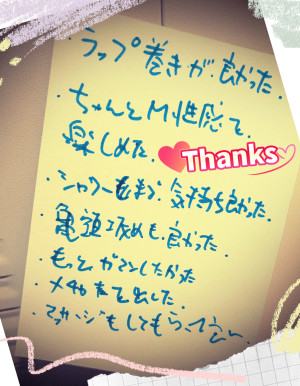 ・ラップ巻きが、良かった。
・ちゃんとM性感で、
楽しめた。
Thanks
・シャワーも 気持ち良かった。
・亀頭攻めも、良かった。
・もっと、ガマンしたかった
・メチャ 出した。
・マッサージもしてもらって